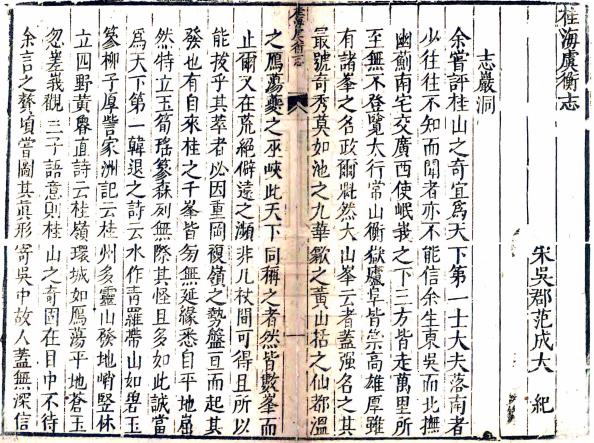 桂海虞衡志
宋吳郡范成大 紀
志巖洞
余嘗評桂山之奇宜爲天下第一士大夫落南者
少往往不知而聞者亦不能信余生東吳而北撫
幽薊南宅交廣西使岷峩之下三方皆走萬里所
至無不登覽大行常山衡嶽廬阜皆崇高雄厚雖
有諸峯之名政爾魁然大山峯云者蓋强名之其
最號奇秀莫如池之九華歙之黄山括之仙都溫
桂海虞衡志
之鴈蕩夔之巫峽此天下同稱之者然皆數峯而
止爾又在荒絕僻遠之瀕非几杖間可得且所以
能拔乎其萃者必因重岡複嶺之勢盤亘而起其
發也有自來桂之千峯皆旁無延緣悉自平地崛
然特立玉筍瑤篸森列無際其怪且多如此誠當
爲天下第一韓退之詩云水作青羅帶山如碧玉
篸柳子厚訾家洲記云桂州多靈山發地峭竪林
立四野黄魯直詩云桂嶺環城如鴈蕩平地蒼玉
忽嵳峩觀三子語意則桂山之奇固在目中不待
余言之贅頃嘗圖其眞形寄吳中故人蓋無深信